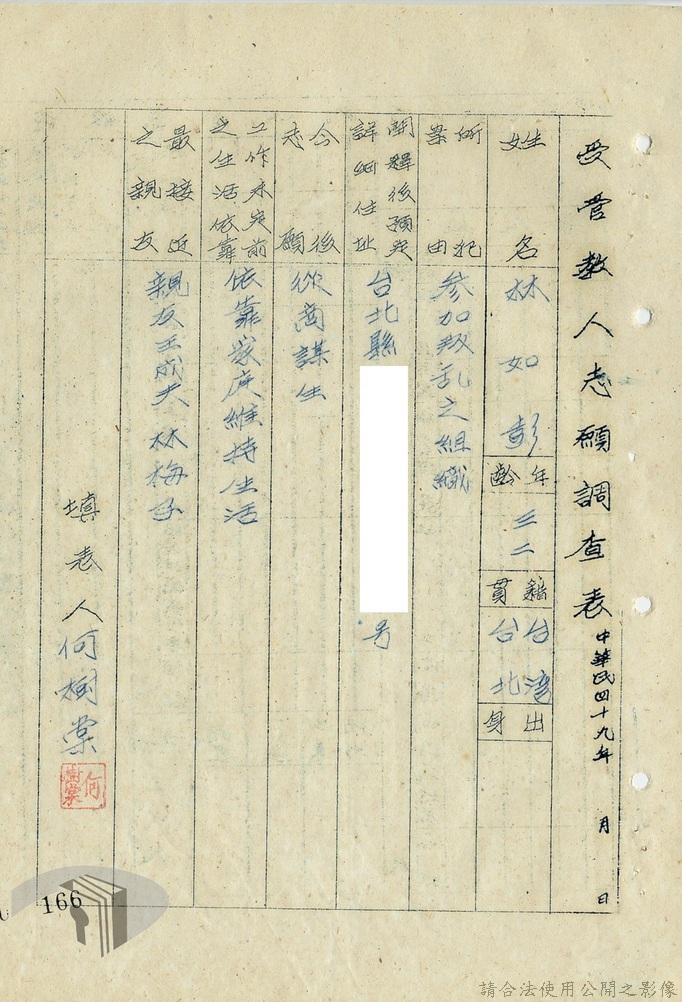 受管教人志願調查表 中華民四十九年 月 日
姓名 林如彭 年齡 三二 籍貫 台湾台北 出身
所犯案由 参加叛乱之組織
開釋後預定詳細住址 台北縣 号
今後志願 從商謀生
工作未定前之生活依靠 依靠家庭維持生活
最接近之親友 親友王成夫 林梅子
填表人何樹棠
何樹棠
166
請合法使用公開之影像